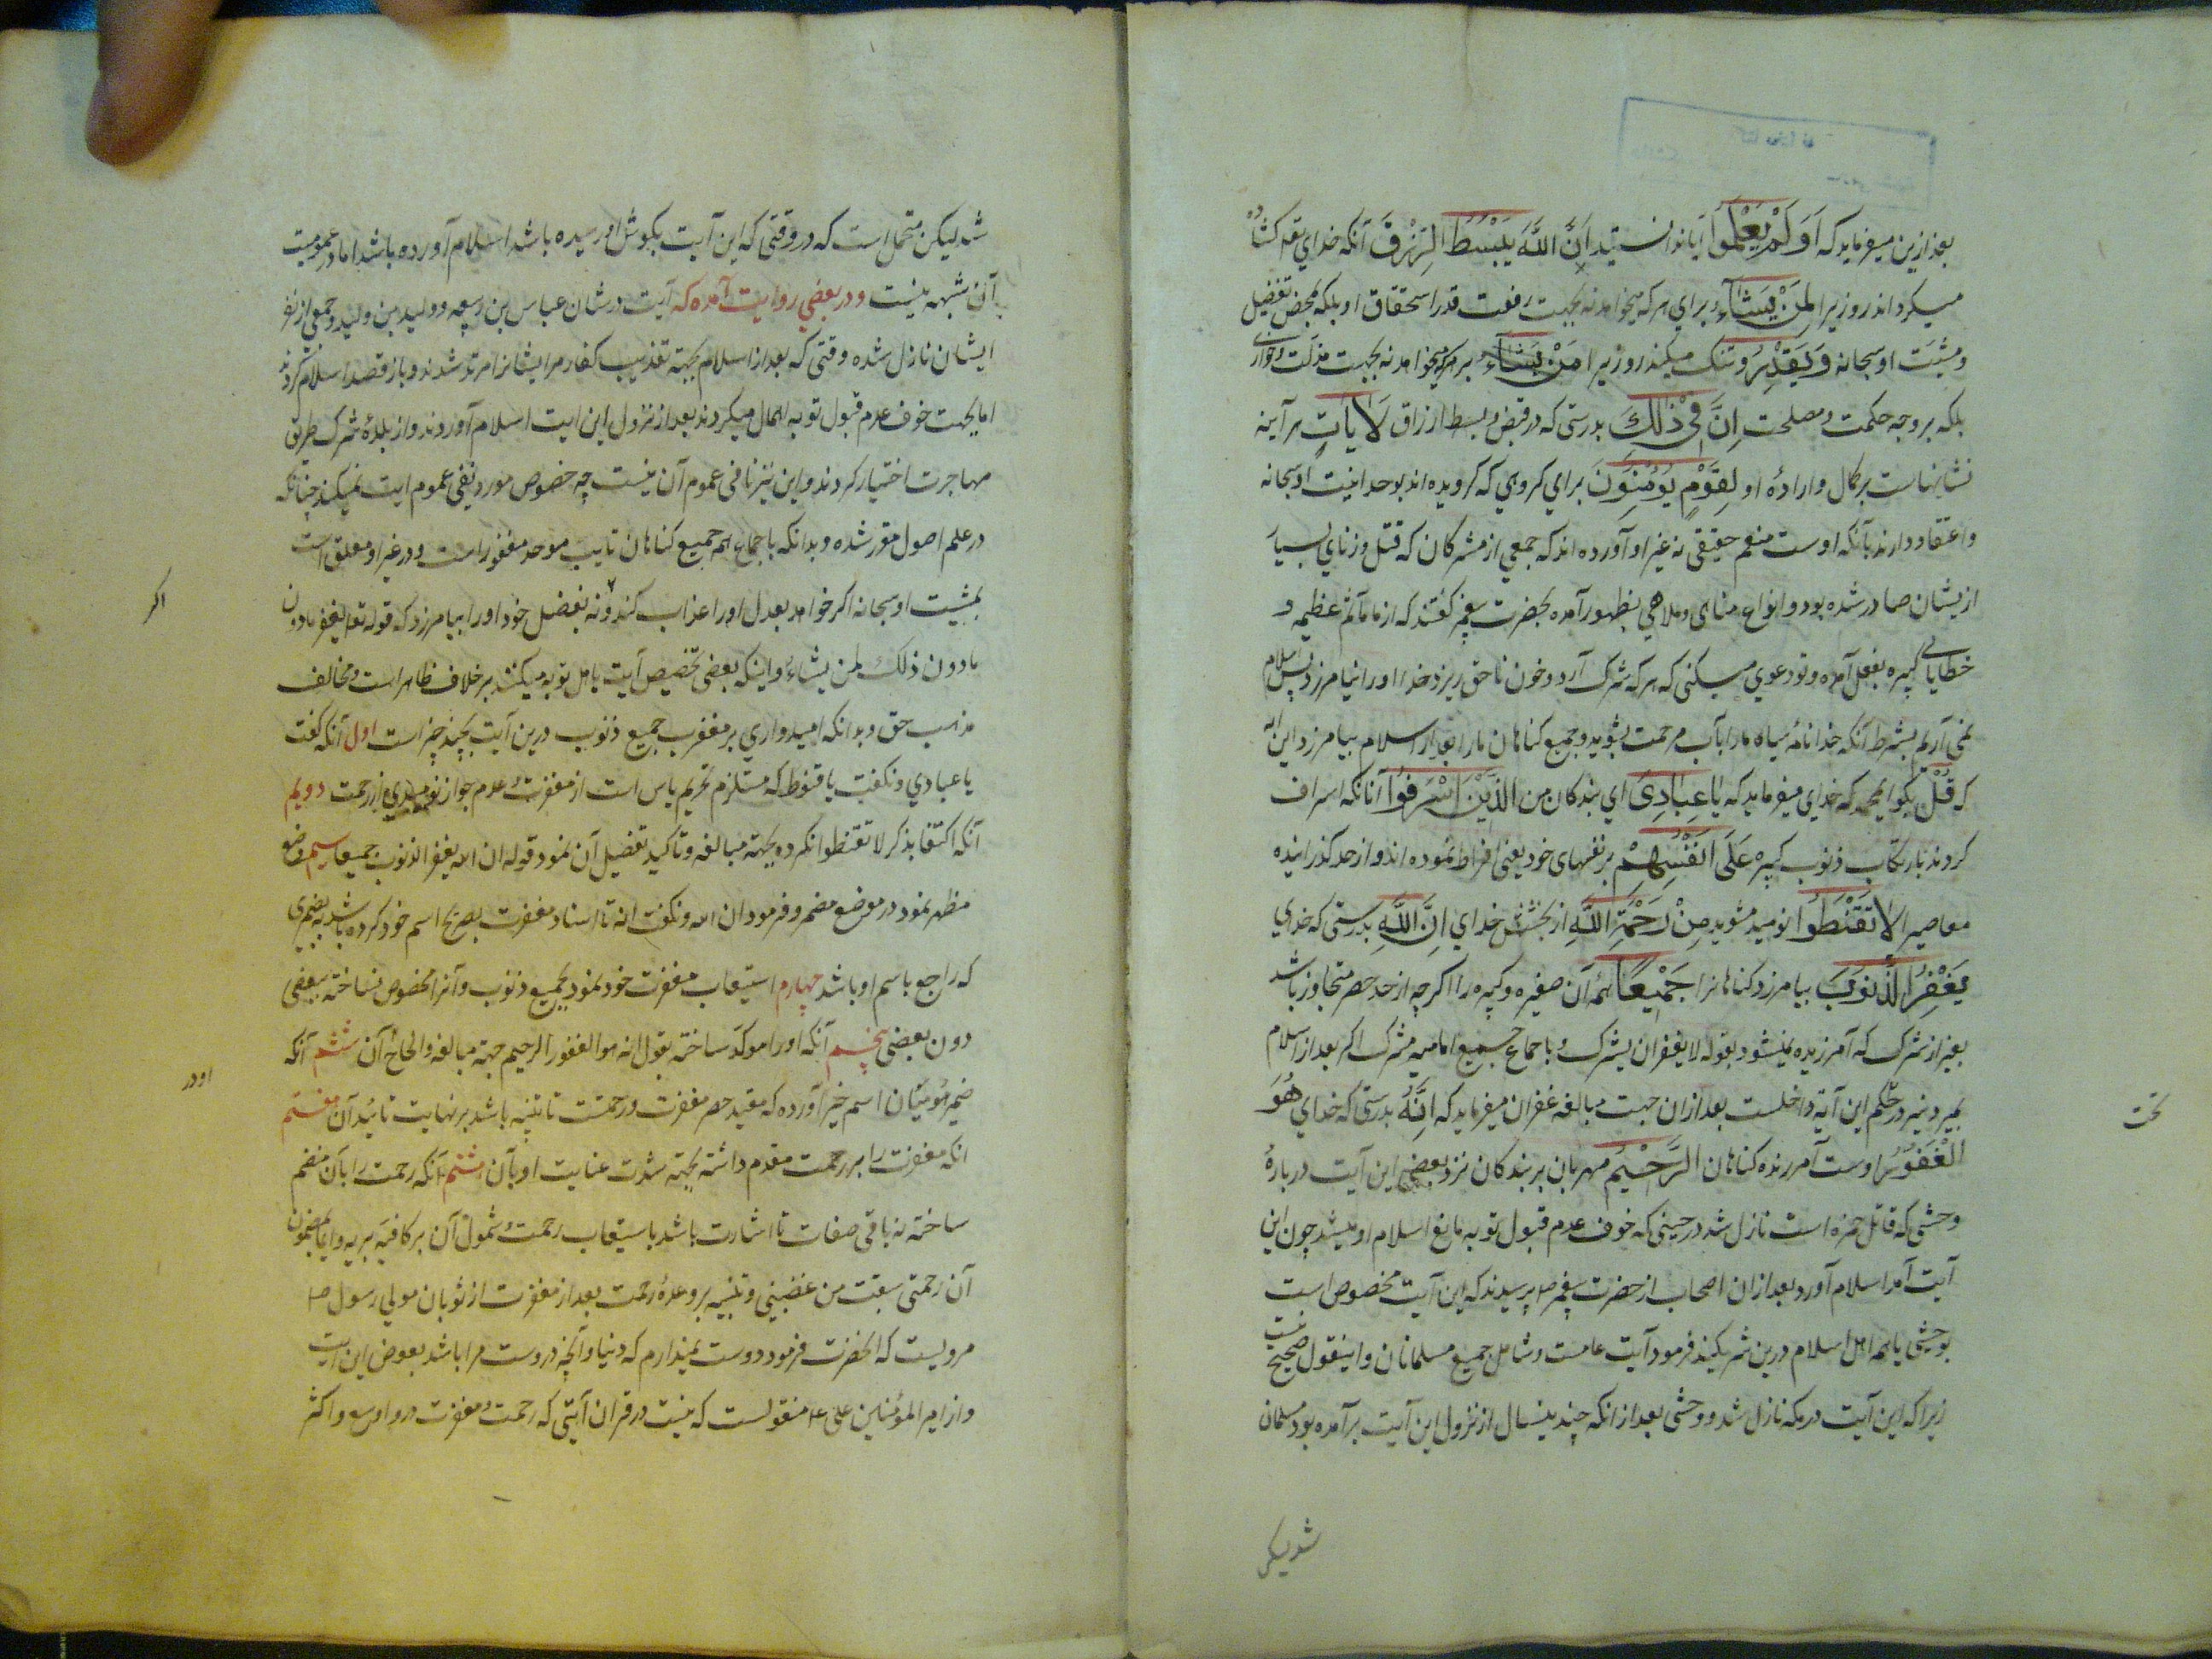 بعد ازین میفرماید که اَوَلَمْ يَعْلَمُوا ایا ندانستید اَنَّ اللّٰهَ يَبْسُطُ الرِّزْقَ آنکه خدای تعه کشاده
میکرداند روزیرا لِمَنْ يَشَاءُ برای هر که میخواهد نه بجهت رفعت قدر استحقاق او بلکه بمحض تفضیل
و مشیت او سبحانه وَ يَقْدِرُ و تنک میکند روزیرا مَنْ يَشَاءُ بر هر که میخواهد نه بجهت مذلت و خواری
بلکه بر وجه حکمت و مصلحت اِنَّ فِي ذٰلِكَ بدرستی که در قبض و بسط ارزاق لَاٰيَاتٍ هر آینه
نشانهاست بر کمال و اراده او لِقَوْمٍ يُؤْمِنُونَ برای کروهی که کرویده اند بوحدانیت او سبحانه
و اعتقاد دارند بآنکه اوست منعم حقیقی نه غیر او آورده اند که جمعی از مشرکان که قتل و زنای بسیار
ازیشان صادر شده بود و انواع مناهی و ملاهی بظهور آمده بحضرت پیغمبر کفتند که از ما مآثم عظیمه و
خطایای کبیره بفعل آمده و تو دعوی میکنی که هر که شرک آرد و خون ناحق ریزد خدا او را نیامرزد پس اسلام
نمی آریم بشرط آنکه خدا نامه سیاه ما را بآب مرحمت بشوید و جمیع کناهان ما را بعد از اسلام بیامرزد این آیه
که قُلْ بکو ای محمد که خدای میفرماید که يَا عِبَادِيَ ای بندکان من الَّذِينَ اَسْرَفُوا آنانکه اسراف
کردند بارتکاب ذنوب کبیره عَلٰى اَنْفُسِهِمْ بر نفسهای خود یعنی افراط نموده اند و از حد کذرانیده
معاصیرا لَا تَقْنَطُوا نومید مشوید مِنْ رَحْمَةِ اللّٰهِ از بخشش خدای اِنَّ اللّٰهَ بدرستی که خدای
يَغْفِرُ الذُّنُوبَ بیامرزد کناهانرا جَمِيعًا همه آن صغیره و کبیره را اکر چه از حد حصر متجاوز باشد
بغیر از شرک که آمرزیده نمیشود بقوله لا یغفر ان یشرک و باجماع جمیع امامیه مشرک اکر بعد از اسلام
بمیرد نیز در حکم این آیة داخلست بعد از ان جهت مبالغه غفران میفرماید که اِنَّهُ بدرستی که خدای هُوَ
الْغَفُورُ اوست آمرزنده کناهان الرَّحِيمُ مهربان بر بندکان نزد بعضی این آیت درباره
وحشی که قاتل حمزه است نازل شد در حینی که خوف عدم قبول توبه مانع اسلام او میشد چون این
آیت آمد اسلام آورد بعد از ان اصحاب از حضرت پیغمبر ص پرسیدند که این آیت مخصوص است
بوحشی یا همه اهل اسلام درین شریکند فرمود آیت عامست و شامل جمیع مسلمانان و اینقول صحیح نیست
زیرا که این آیت در مکه نازل شد و وحشی بعد از انکه چندین سال از نزول این آیت برآمده بود مسلمان
تحت
شد لیکن
شد لیکن محتمل است که در وقتی که این آیت بکوش او رسیده باشد اسلام آورده باشد اما در عمومیت
آن شبهه نیست و در بعضی روایت آمده که آیت در شان عباس بن ربیعه و ولید بن ولید و جمعی از نفر
ایشان نازل شده وقتی که بعد از اسلام بجهة تعذیب کفار مر ایشانرا مرتد شدند و باز قصد اسلام کردند
اما بجهت خوف عدم قبول توبه اهمال میکردند بعد از نزول این ایت اسلام آوردند و از بلده شرک طریق
مهاجرت اختیار کردند و این نیز نافی عموم آن نیست چه خصوص مورد نفی عموم ایت نمیکند چنانکه
در علم اصول مقرر شده و بدانکه باجماع همه جمیع کناهان تایب موحد مغفور است و در غیر او معلق است
بمشیت او سبحانه اکر خواهد بعدل او را عذاب کند و نه بفضل خود او را بیامرزد که قوله تعا یغفر مادون
مادون ذلک لمن یشاء و اینکه بعضی تخصیص آیت باهل توبه میکنند بر خلاف ظاهر است و مخالف
مذهب حق و بدانکه امیدواری بر مغفرت جمیع ذنوب درین آیت بچند چیز است اول آنکه کفت
یا عبادی و نکفت یا قنوط که مستلزم تحریم یاس است از مغفرت و عدم جواز نومیدی از رحمت دویم
آنکه اکتفا بذکر لا تقنطوا نکرده بجهة مبالغه و تاکید تفضیل آن نمود قوله ان الله یغفر الذنوب جمیعا سیم وضع
مظهر نمود در موضع مضمر و فرمود ان الله و نکفت انه تا اسناد مغفرت بصریح اسم خود کرده باشد نه بضمیری
که راجع باسم او باشد چهارم استیعاب مغفرت خود نمود بجمیع ذنوب و آنرا مخصوص نساخته ببعضی
دون بعضی پنجم آنکه او را موکد ساخته بقول انه هو الغفور الرحیم جهة مبالغه و الحاح آن ششم آنکه
ضمیر میان اسم خبر آورده که مفید حصر مغفرت و رحمت تا تنبیه باشد بر نهایت تائید آن هفتم
انکه مغفرت را بر رحمت مقدم داشته بجهة شدت عنایت او بآن هشتم آنکه رحمت را بآن منضم
ساخته نه باقی صفات تا اشارت باشد باستیعاب رحمت و شمول آن بر کافه بریه و ایما بمضمون
آن رحمتی سبقت من غضبی و تنبیه بر وعده رحمت بعد از مغفرت از ثوبان مولی رسول ص
مرویست که الحضرت فرمود دوست نمیدارم که دنیا و آنچه دروست مرا باشد بعوض این آیت
و از امیر المؤمنین علی ع منقولست که نیست در قران آیتی که رحمت و مغفرت درو اوسع و اکثر
اکر
اودر